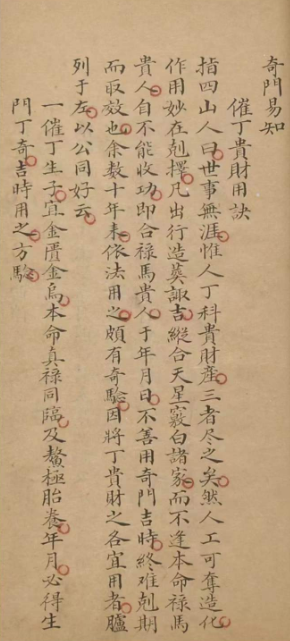 奇門易知
催丁貴財用訣
指四山人曰世事無涯惟人丁科貴財產三者盡之矣然人工可奪造化
作用妙在剋擇凡出行造𦵏諏吉縱合天星竅白諸家而不逢本命祿馬
貴人自不能收功即合祿馬貴人于年月日不善用奇門吉時終难剋期
而取效也余數十年来依法用之頗有奇驗因將丁貴財之各宜用者臚
列于左以公同好云
一催丁生子宜金匱金烏本命真祿同臨及鰲極胎養年月必得生
門丁奇吉時用之方驗